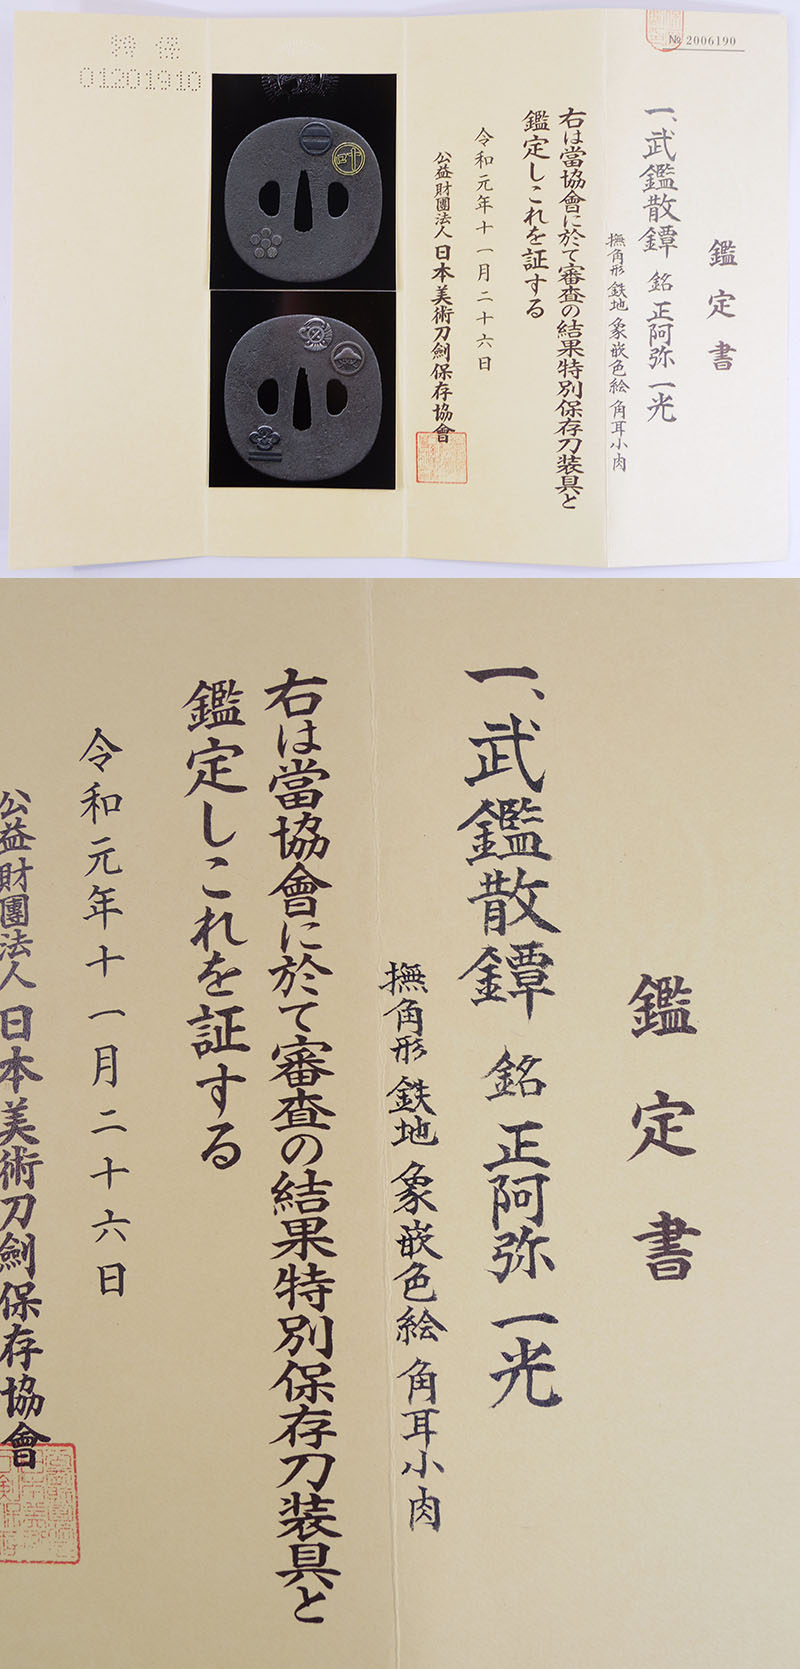 № 2006190
鑑定書
一、武鑑散鐔 銘 正阿弥一光
撫角形 鉄地 象嵌色絵 角耳小肉
右は當協會に於て審査の結果特別保存刀装具と
鑑定しこれを証する
令和元年十一月二十六日
公益財團法人日本美術刀劍保存協會
01201910
鑑定書
一、武鑑散鐔 銘 正阿弥一光
撫角形 鉄地 象嵌色絵 角耳小肉
右は當協會に於て審査の結果特別保存刀装具と
鑑定しこれを証する
令和元年十一月二十六日
公益財團法人日本美術刀劍保存協會